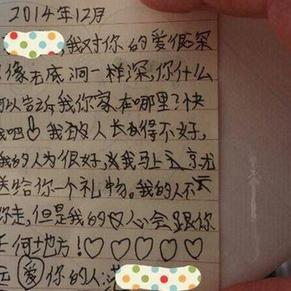 2014年12月
,我对你的爱很深
像无底洞一样深,你什么
以告诉我你家在哪里?快
我吧!我的人长办得不好,
我的人为很好,
送给你一个礼物。我的人不
你走,但是我的心会跟你
任何地方!♡♡♡♡♡
爱你的人: